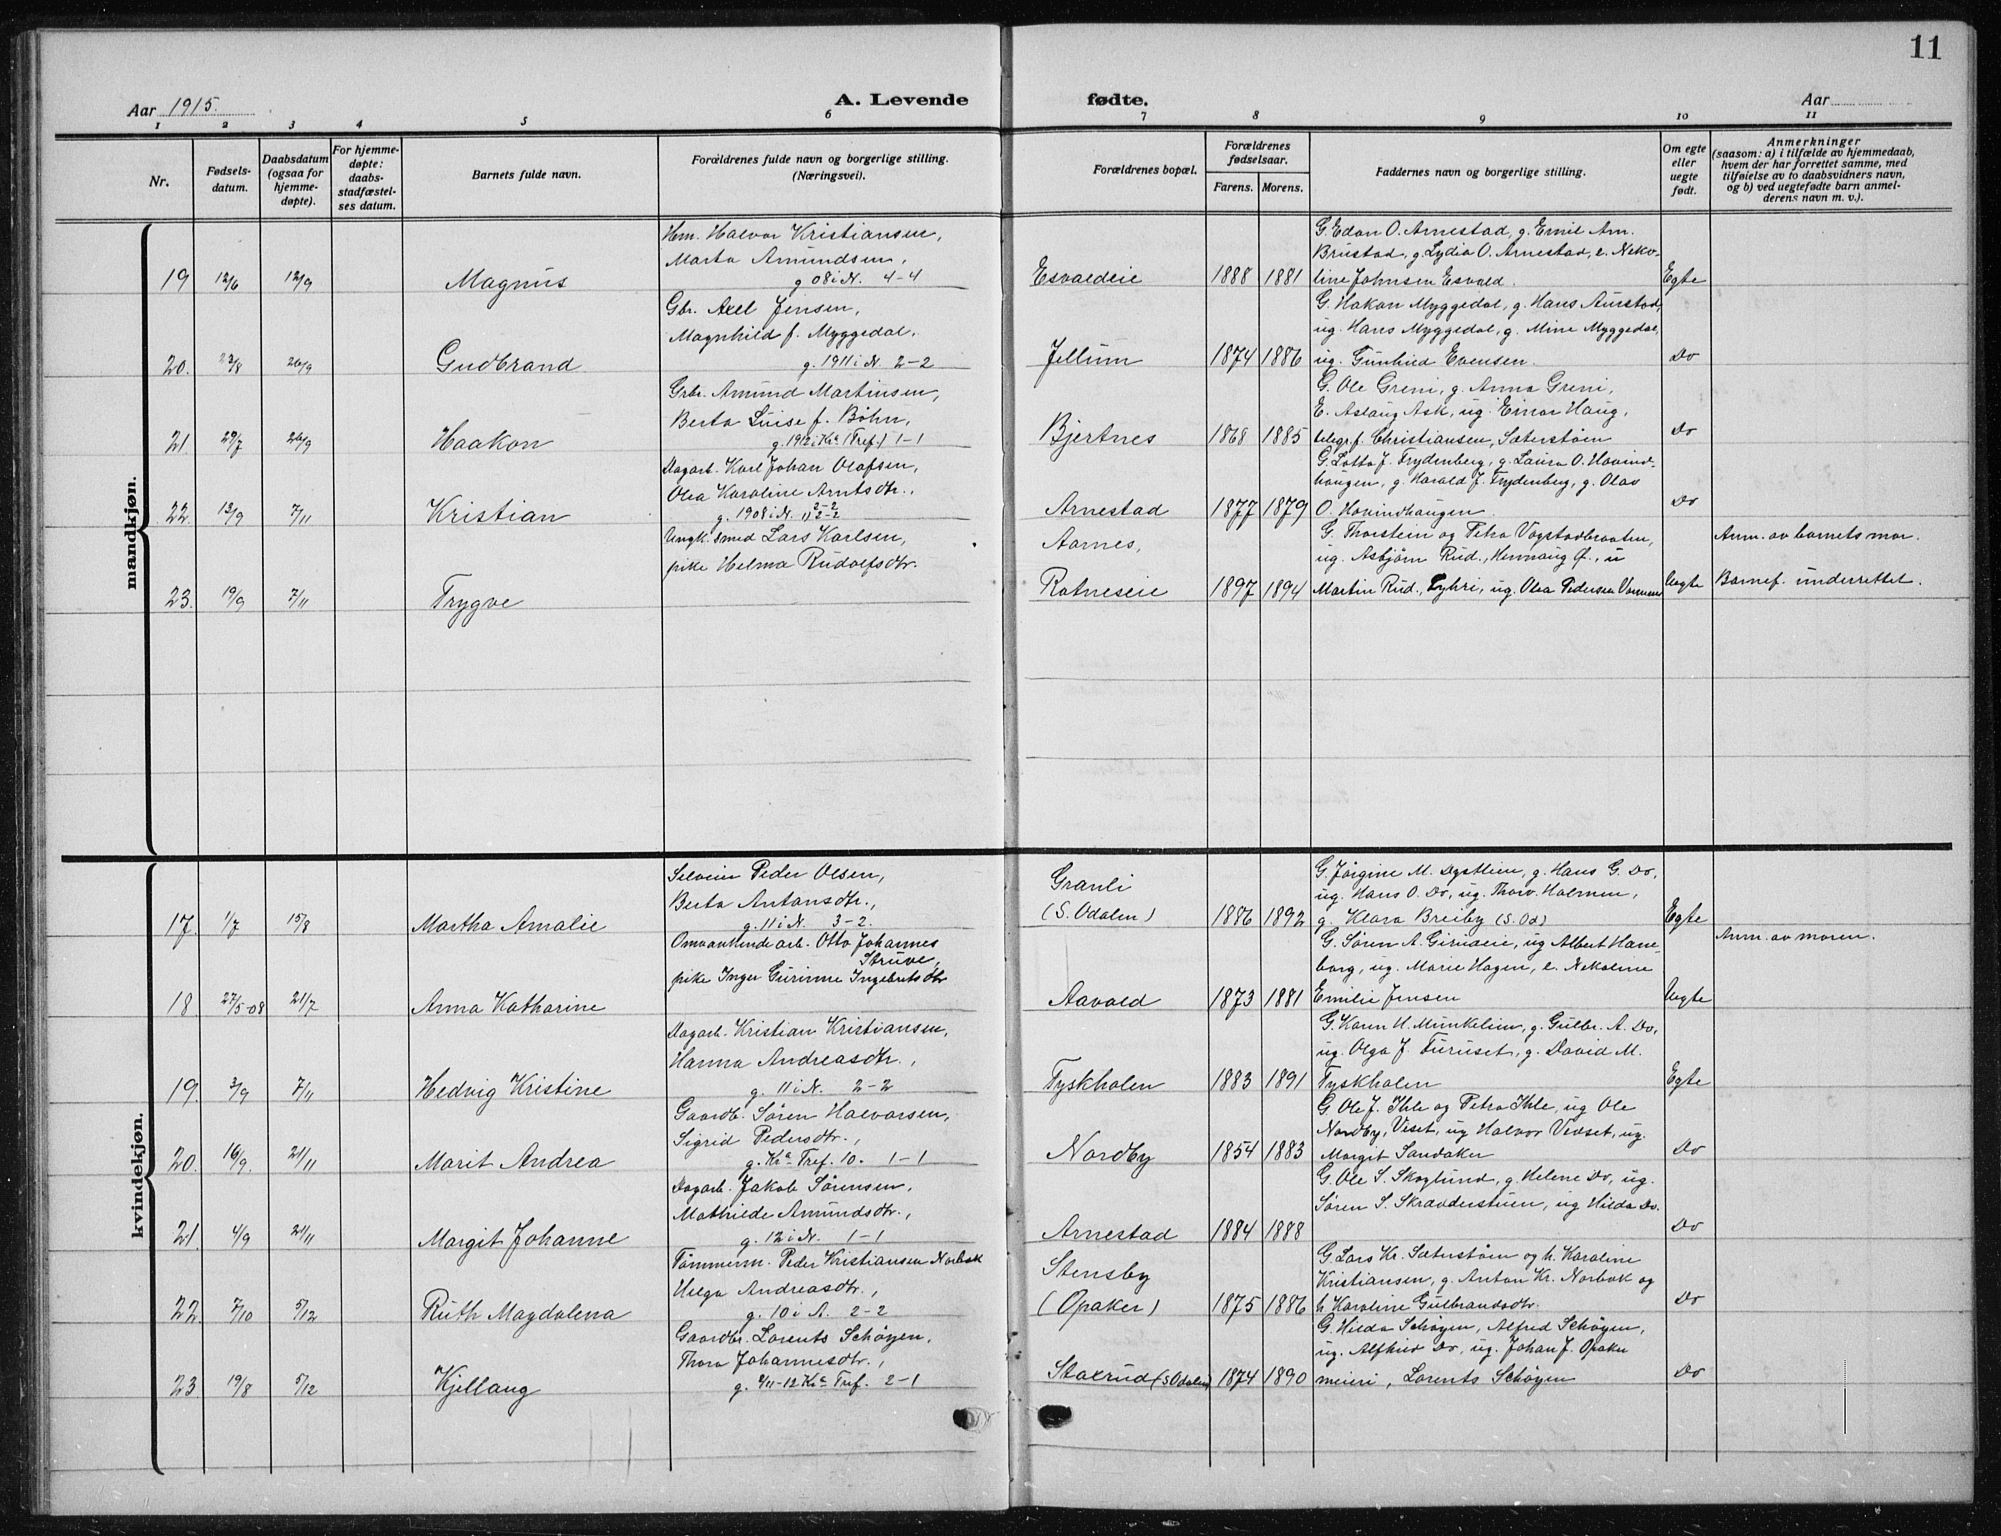 11
Aar 1915.
A. Levende
fødte.
Aar
1 2 3 4 5 6 7 8 9 10 11
Nr.
Fødsels-
datum.
Daabsdatum
(ogsaa for
hjemme-
døpte).
For hjemme-
døpte:
daabs-
stadfæstel-
ses datum.
Barnets fulde navn.
Forældrenes fulde navn og borgerlige stilling.
(Næringsvei).
Forældrenes bopæl.
Forældrenes
fødselsaar.
Farens. Morens.
Faddernes navn og borgerlige stilling.
Om egte
eller
uegte
født.
Anmerkninger
(saasom: a) i tilfælde av hjemmedaab,
hvem der har forrettet samme, med
tilføielse av to daabsvidners navn,
og b) ved uegtefødte barn anmel-
derens navn m. v.).
mandkjøn.
Hm. Halvor Kristiansen,
Marta Amundsen,
19 12/6 12/9 Magnus g 08 i N. 4-4
Esvaldeie 1888 1881
G. Edon O. Arnestad, g. Emil Am.
Brustad, g. Lydia O. Arnestad, e. Neko-
line Johnsen Esvald. Egte
Gbr. Axel Jensen,
Magnhild f. Myggedal.
20. 23/8 26/9 Gudbrand g. 1911 i N. 2-2
Jellum 1874 1886
G. Hakon Myggedal, g. Hans Aurstad,
ug. Hans Myggedal, g. Mine Myggedal,
ug. Gunhild Evensen. Do
Gbr. Amund Martinsen,
Berta Luise f. Bøhn,
21 29/7 26/9 Haakon g. 1912 i Kr.a (Tref.) 1-1
Bjertnes 1868 1885
G. Ole Greni, g. Anna Greni,
E. Aslaug Ask, ug. Einar Haug,
telegr.f. Christiansen, Sæterstøen Do
Dagarb. Karl Johan Olafsen,
Olea Karoline Arntsdtr.,
22. 13/9 7/11 Kristian g. 1908 i N. 2-2
Arnestad 1877 1879
G. Lotta J. Frydenberg, g. Laura O. Hovind-
haugen, g. Harald J. Frydenberg, g. Olav
O. Hovindhaugen. Do
Ungk. smed Lars Karlsen,
pike Helma Rudolfsdtr.
23. 19/9 7/11 Trygve
Aarnes,
Rotneseie 1897 1894
G. Thorstein og Petra Vogstadbraaten,
ug. Asbjørn Rud, Hennaug Ø., u
Martin Rud, ug. Olea Pedersen Uegte
Anm. av barnets mor.
Barnef. underrettet.
kvindekjøn.
Peder Olsen,
Berta Antonsdtr.,
17. 1/7 15/8 Martha Amalie g. 11 i N. 3-2.
Granli
(S. Odalen) 1886 1892
G. Jørgine M. Dystlien, g. Hans G. Do,
ug. Hans O. Do, ug. Thorv. Holmen,
g. Klara Breiby (S. Od) Egte
Omvankende arb. Otto Johannes
Struve,
pike Inger Gurinne Ingebretsdtr
18 27/5-08 21/7 Anna Katharine
Aavald 1873 1881
G. Søren A. Giruseie, ug Albert Hane-
borg, ug. Marie Hagen, e. Nekoline
Emilie Jensen Uegte
Anm. av moren.
Dagarb. Kristian Kristiansen,
Hanna Andreasdtr.,
19. 3/9 7/11 Hedvig Kristine g. 11 i N. 2-2
Tyskholen 1883 1891
G. Karen H. Munkelien, g. Gulbr. A. Do,
ug. Olga J. Furuset, g. David M.
Tyskholen Egte
Gaardbr. Søren Halvorsen,
Sigrid Pedersdtr.,
20. 16/9. 21/11 Marit Andrea g. Kr.a Tref. 10. 1-1
Nordby 1854 1883
G. Ole J. Ihle og Petra Ihle, ug Ole
Nordby, Veset, ug Halvor Vedset, ug.
Margit Sandaker Do
Dagarb. Jakob Sørensen,
Mathilde Amundsdtr.,
21. 4/9 21/11 Margit Johanne g. 12 i N. 1-1
Arnestad 1884 1888
G. Ole S. Skoglund, g. Helene Do, ug.
Søren S. Skrædderstuen, ug Hilda Do. Do
Tømmerm. Peder Kristiansen Norbak
Helga Andreasdtr.,
22. 7/10 5/12 Ruth Magdalena g. 10 i A. 2-2
Stensby
(Opaker) 1875 1886
G. Lars Kr. Sæterstøen og h. Karoline
Kristiansen, g. Anton Kr. Norbak og
h Karoline Gulbrandsdtr. Do
Gaardbr. Lorents Schøyen,
Thora Johannesdtr.,
23 19/8 5/12 Kjellaug g. 2/11-12 Kr.a Tref. 2-1
Staxrud (S Odalen) 1874 1890
G. Hilda Schøyen, Alfred Schøyen,
ug. Alfhild Do, ug. Johan J. Opaker
meieri, Lorents Schøyen Do